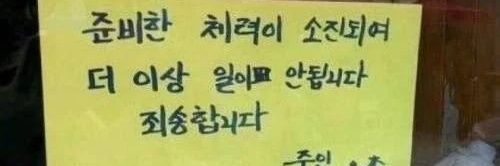 준비한 체력이 소진되여
더 이상 일이 안됩니다
죄송합니다
주인